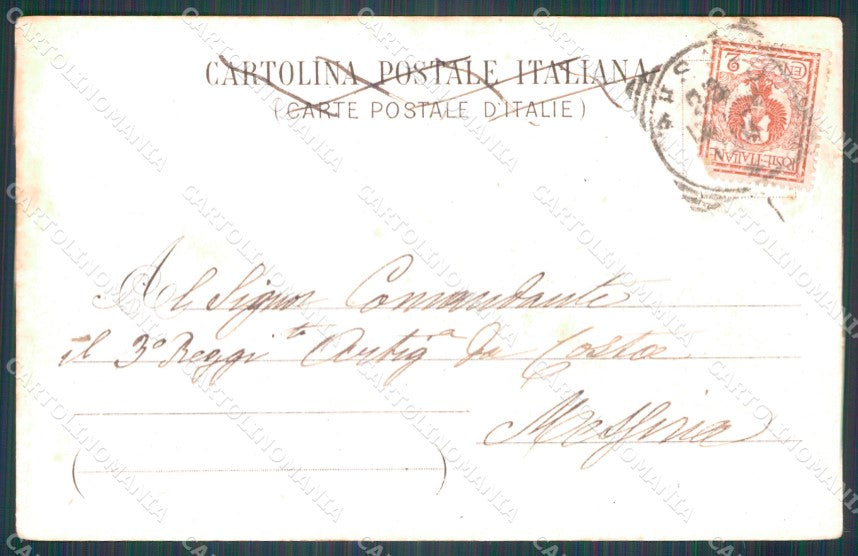 CARTOLINA POSTALE ITALIANA
(CARTE POSTALE D'ITALIE)
POSTE·ITALIAN
CENT 2
Al Signor Comandante
il 3º Reggi.to Artig.a da Costa
Messina
CARTOLINOMANIA